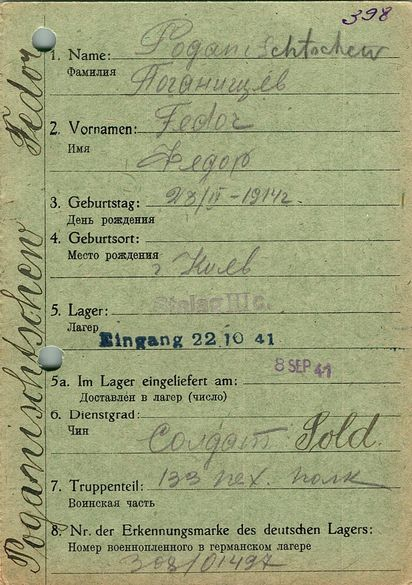 398
1. Name: Poganischtschew
Фамилия
Поганищев
2. Vornamen: Fedor
Имя
Федор
3. Geburtstag: 23/II-1914г.
День рождения
4. Geburtsort:
Место рождения
г Киев
5. Lager: Stalag III c.
Лагер
Eingang 22 10 41
8 SEP 41
5a. Im Lager eingeliefert am:
Доставлен в лагер (число)
6. Dienstgrad:
Чин
Солдат Sold.
7. Truppenteil: 133 пех. полк
Воинская часть
8. Nr. der Erkennungsmarke des deutschen Lagers:
Номер военнопленного в германском лагере
308/01497
Poganischtschew Fedor